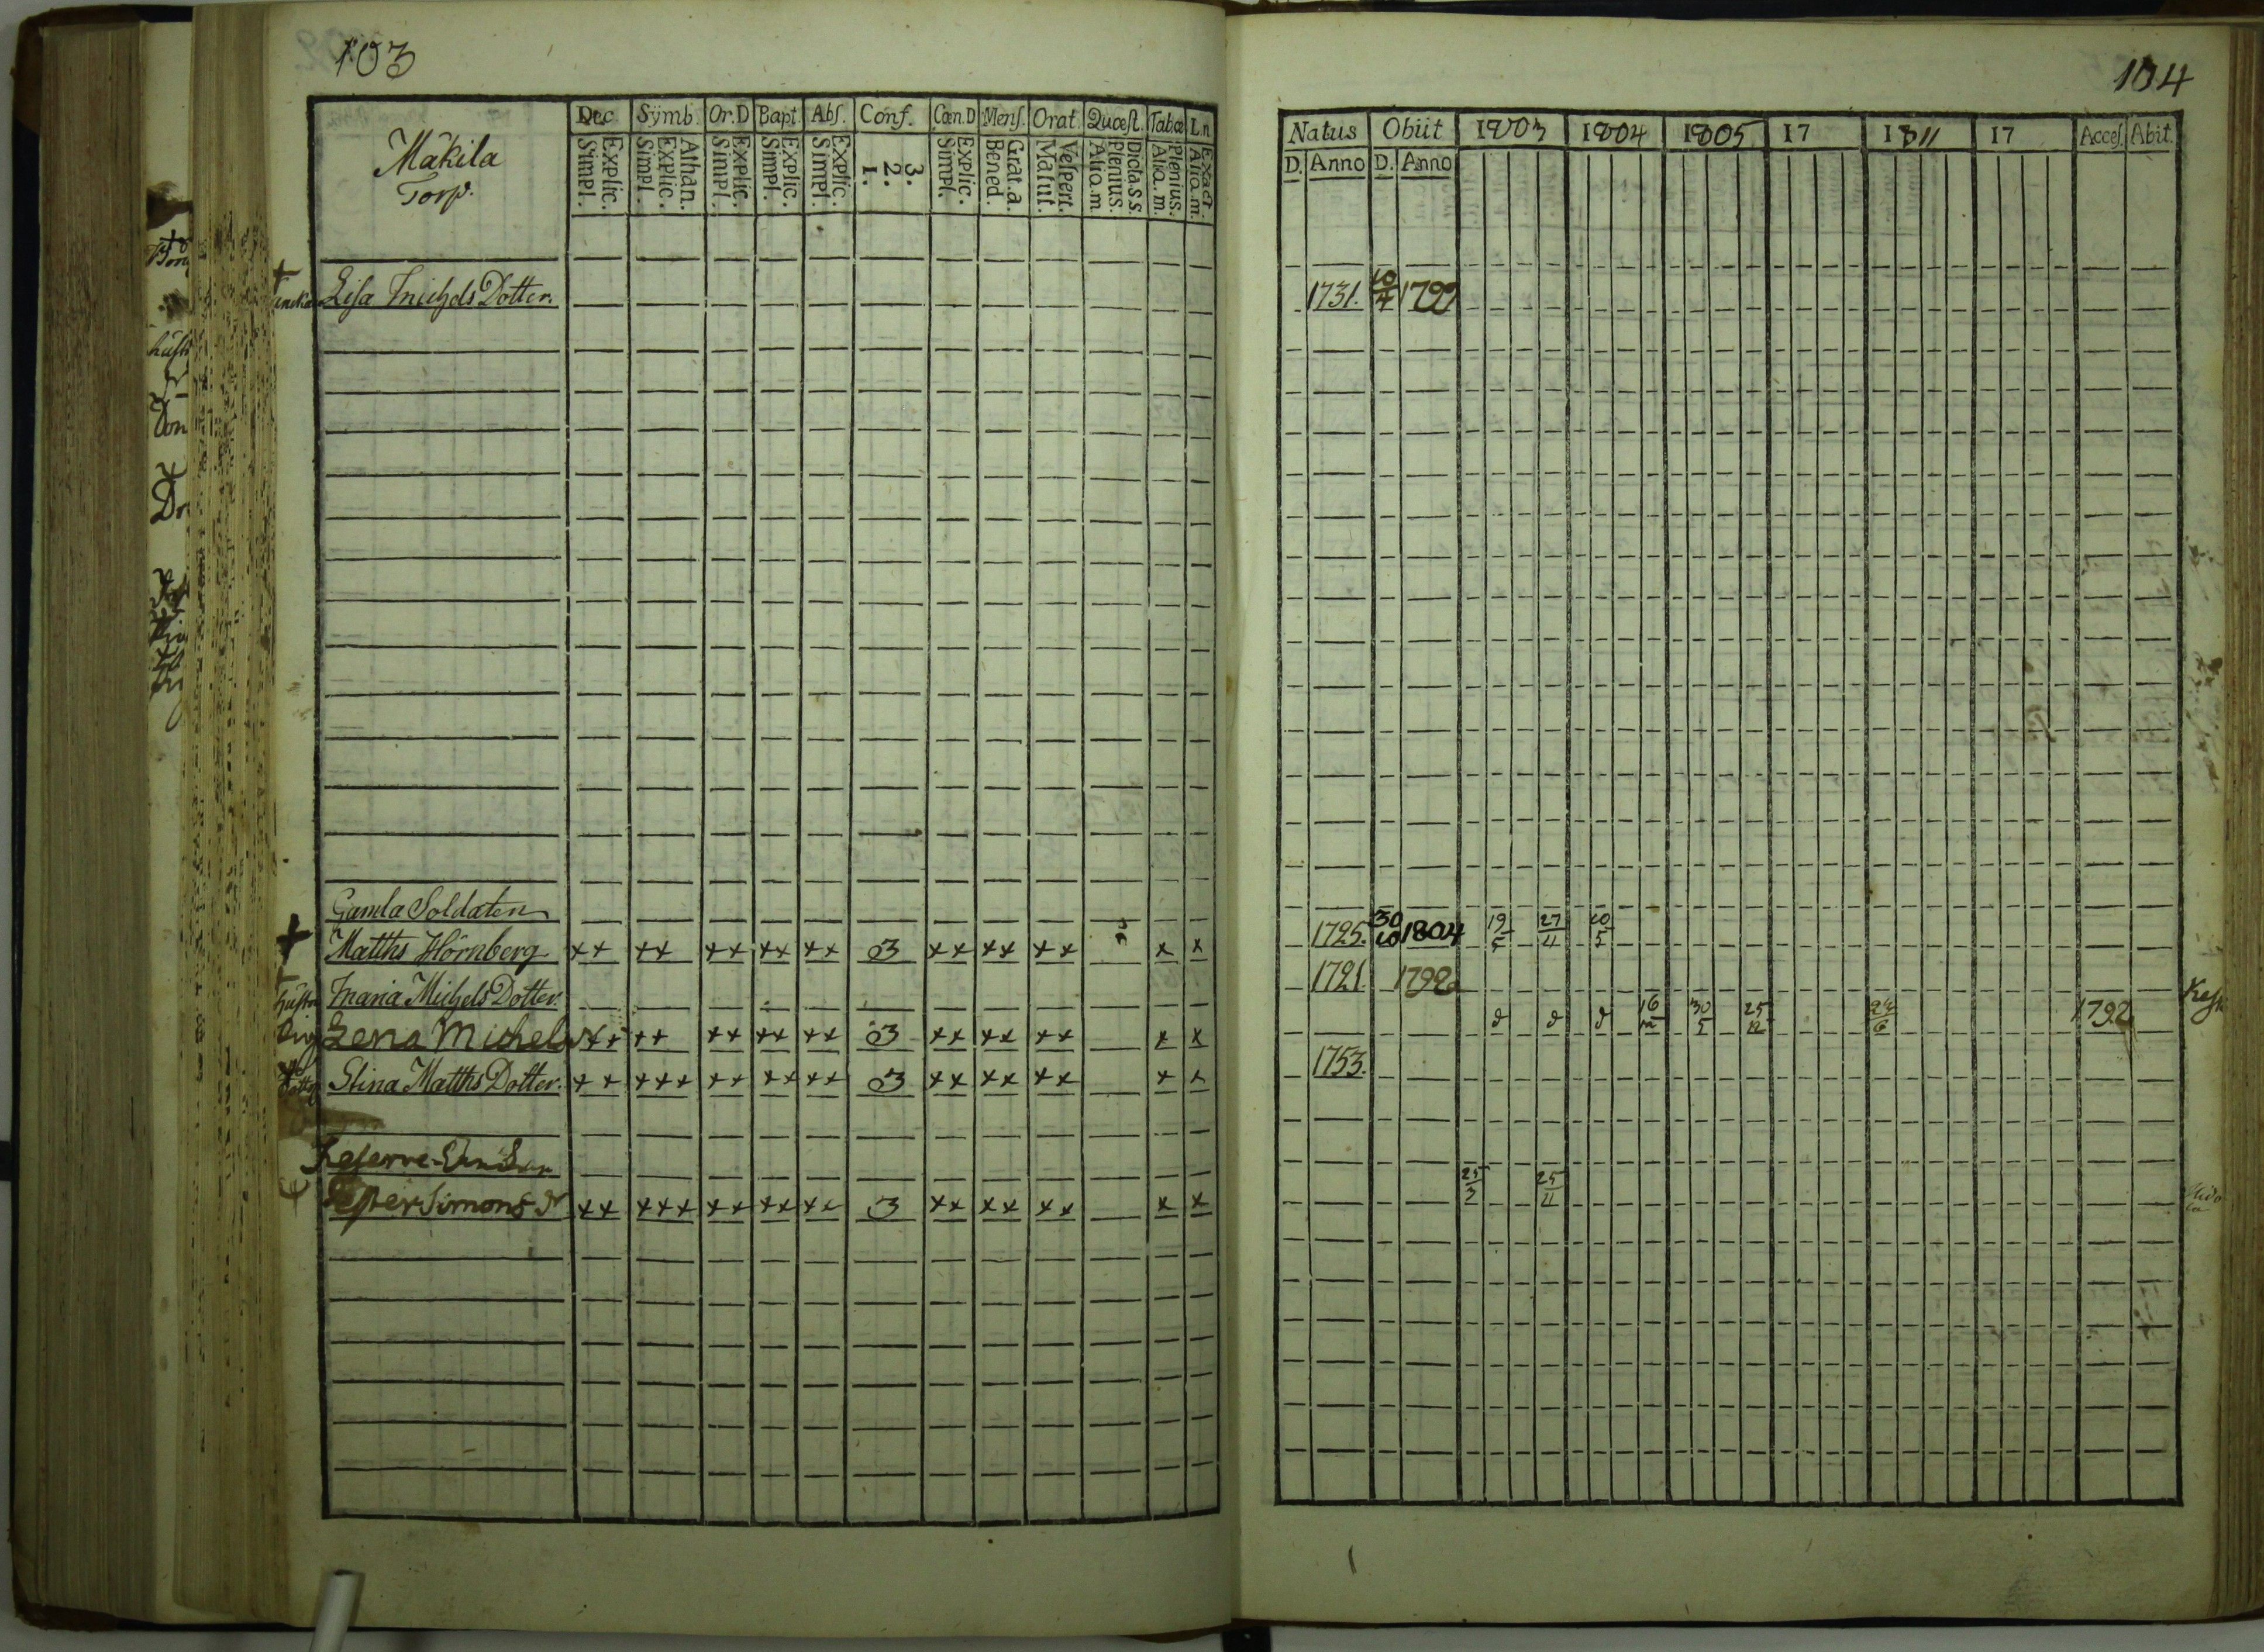 103
Mäkilä
Torp.
Dec
Symb.
Or.D
Bapt.
Abſ.
Conf.
Cœn.D
Menſ.
Orat.
Quœſt.
Tab.œ
L.n
Explic.
Simpl.
Athan.
Explic.
Simpl.
Explic.
Simpl.
Explic.
Simpl.
Explic.
Simpl.
3.
2.
1.
Explic.
Simpl.
Grat.a.
Bened.
Veſpert.
Matut.
Dicta.S.S.
Plenius.
Alio.m
Plenius.
Alio.m.
Exact.
Alio.m.
+
Lisa Michels Dotter.
Gamla Soldaten
+ Matths Hörnberg ×× ×× ×× ×× ×× 3 ×× ×× ×× × ×
+
hustru Maria Michels Dotter.
Lena Michels ×× ×× ×× ×× ×× 3 ×× ×× ×× × ×
Stina Matths Dotter. ×× ××× ×× ×× ×× 3 ×× ×× ×× × ×
Reserve
Simons ×× ××× ×× ×× ×× 3 ×× ×× ×× × ×
104
Natus Obiit 1803 1804 1805 17 1811 17 Acceſ. Abit.
D. Anno D. Anno
1731. 1799
1725. 30/10 1804 19/5 27/11 20/5
1721. 1792
16/12 30/5 25/12 24/6 1792
1753.
25/3 25/11